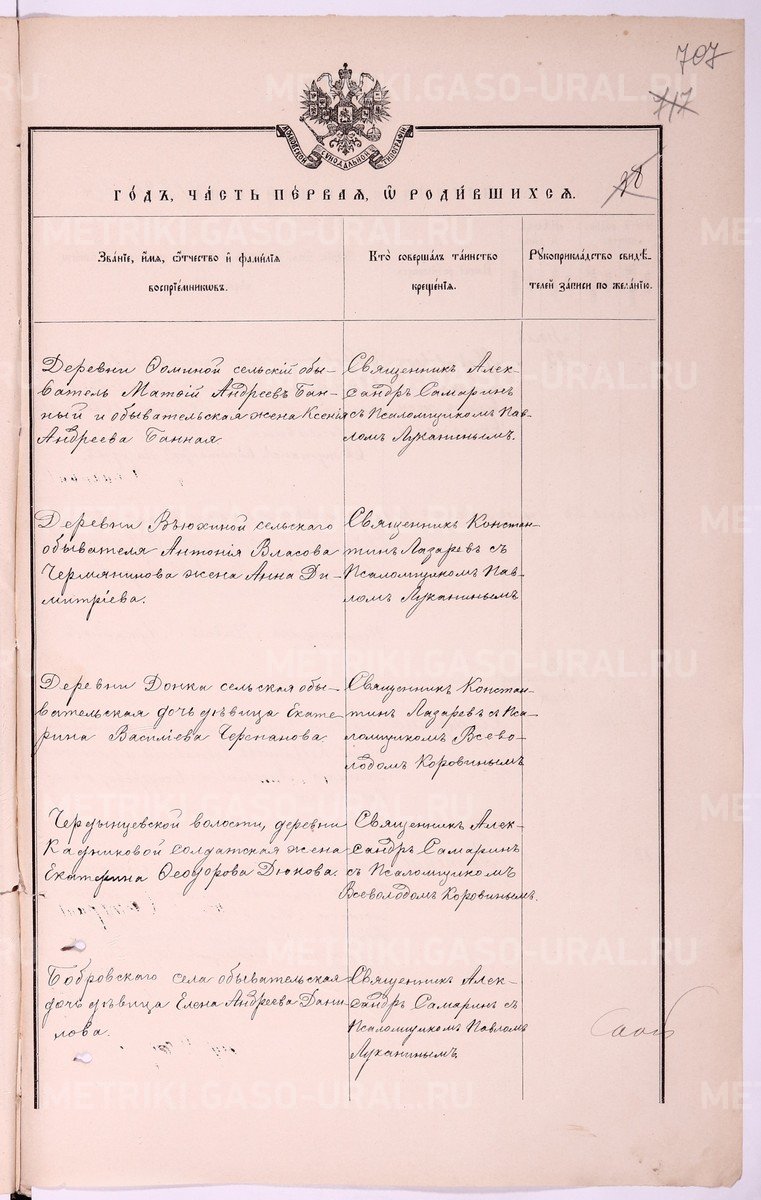 707
717
28
МОСКОВСКОЙ СѴНОДАЛЬНОЙ ТИПОГРАФІИ
ГОДЪ, ЧАСТЬ ПЕРВАЯ, Ѽ РОДИВШИХСЯ.
Званіе, имя, ѻтчество и фамилія воспріемниковъ.
Кто совершалъ таинство крещенія.
Рукоприкладство свидѣтелей записи по желанію.
Деревни Ѳоминой сельскій обы-
ватель Матѳій Андреевъ Бан-
ный и обывательская жена Ксенія
Андреева Банная
Священникъ Алек-
сандръ Самаринъ
съ Псаломщикомъ Пав-
ломъ Луканинымъ.
Деревни Вьюхиной сельскаго
обывателя Антонія Власова
Чермянинова жена Анна Ди-
митріева.
Священникъ Констан-
тинъ Лазаревъ съ
Псаломщикомъ Пав-
ломъ Луканинымъ
Деревни Донка сельская обы-
вательская дочь дѣвица Екате-
рина Василіева Черепанова
Священникъ Констан-
тинъ Лазаревъ съ Пса-
ломщикомъ Всево-
лодомъ Коровинымъ
волости, деревни
Кадниковой солдатская жена
Екатерина Ѳеодорова Дюкова
Священникъ Алек-
сандръ Самаринъ
съ Псаломщикомъ
Всеволодомъ Коровинымъ.
Бобровскаго села обывательская
дочь дѣвица Елена Андреева Дани-
лова.
Священникъ Алек-
сандръ Самаринъ съ
Псаломщикомъ Павломъ
Луканинымъ
METRIKI.GASO-URAL.RU